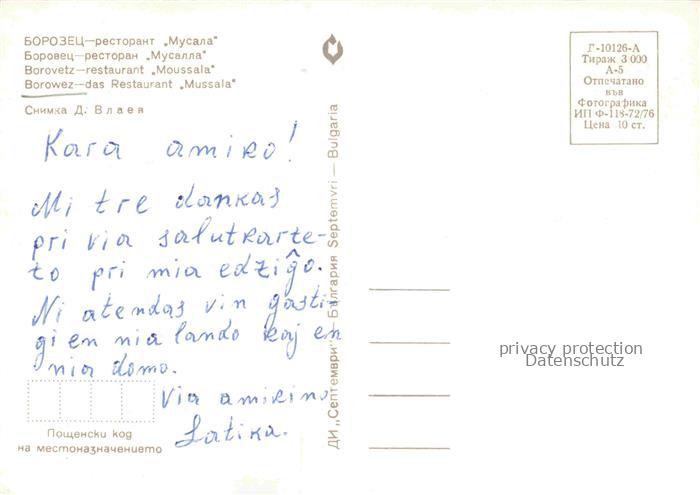 БОРОЗЕЦ—ресторант „Мусала"
Боровец—ресторан „Мусалла"
Borovetz—restaurant „Moussala"
Borowez—das Restaurant „Mussala"
Снимка Д. Влаев
Kara amiko!
Mi tre dankas
pri via salutkarte-
to pri mia edziĝo.
Ni atendas vin gasti-
gi en nia lando kaj en
nia domo.
Via amikino
Latika.
Пощенски код
на местоназначението
ДИ „Септември" — България Septemvri — Bulgaria
Г-10126-А
Тираж 3 000
А-5
Отпечатано
във
Фотографика
ИП Ф-118-72/76
Цена 10 ст.
privacy protection
Datenschutz